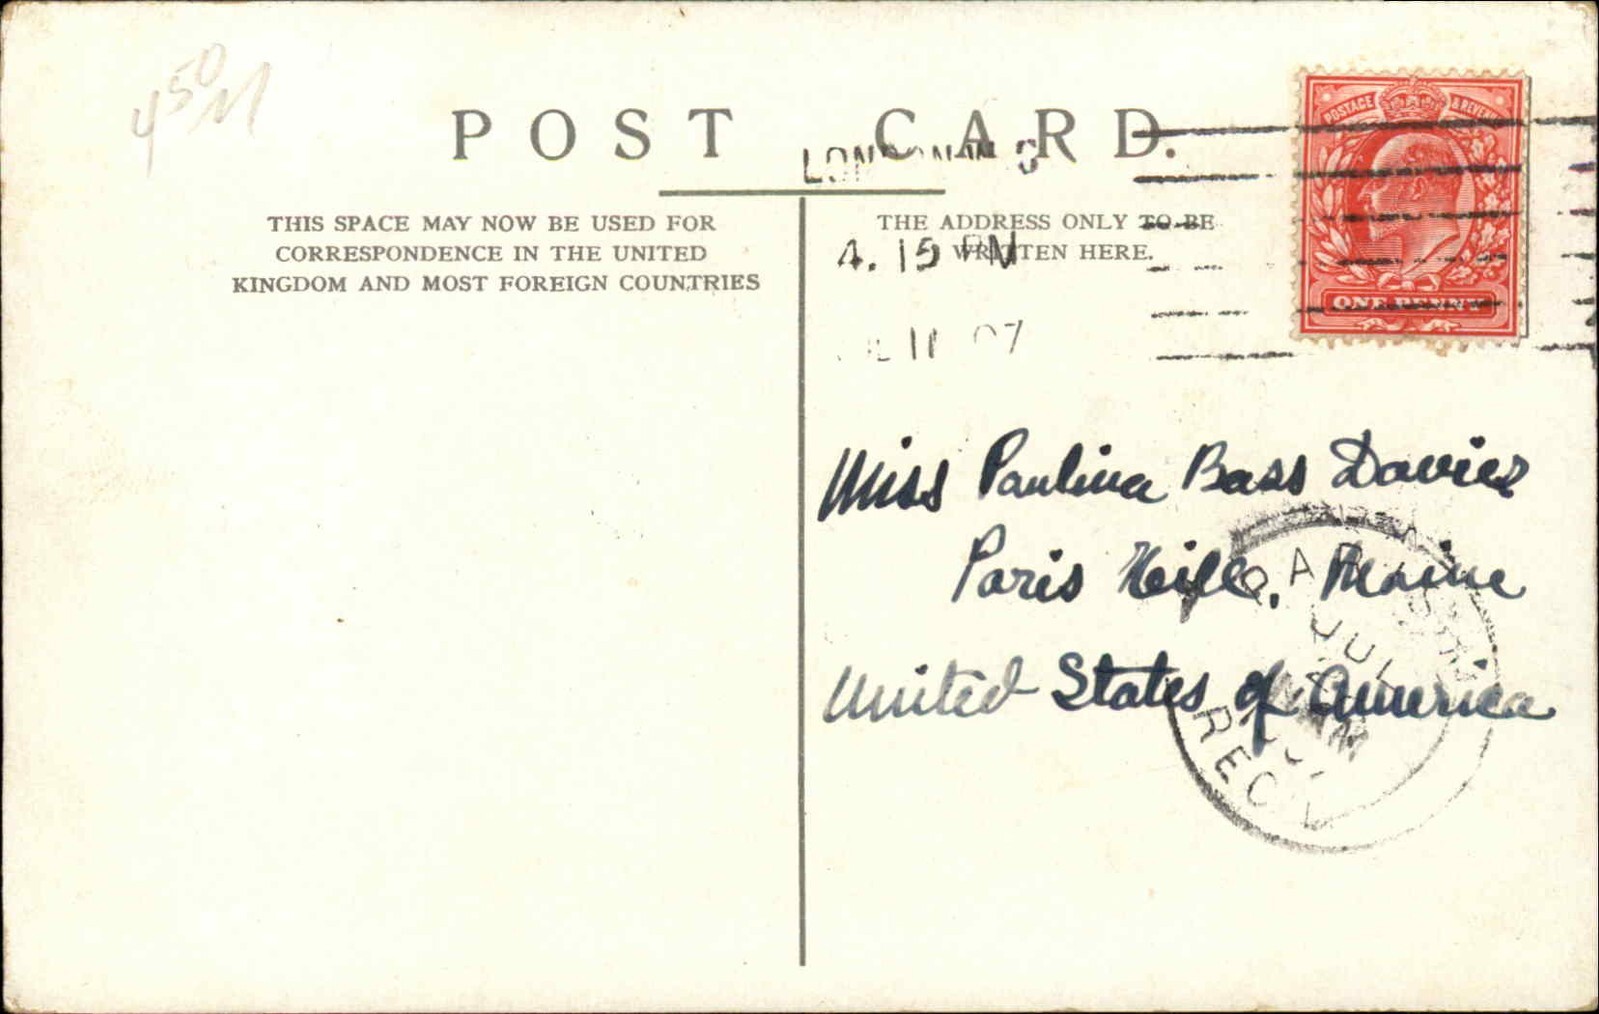 450
POST CARD.
THIS SPACE MAY NOW BE USED FOR
CORRESPONDENCE IN THE UNITED
KINGDOM AND MOST FOREIGN COUNTRIES
THE ADDRESS ONLY TO BE
WRITTEN HERE.
4.15 PM
11 07
POSTAGE & REVENUE
ONE PENNY
Miss Paulina Bass Davies
Paris Hill, Maine
United States of America
JUL
AM
REC'V